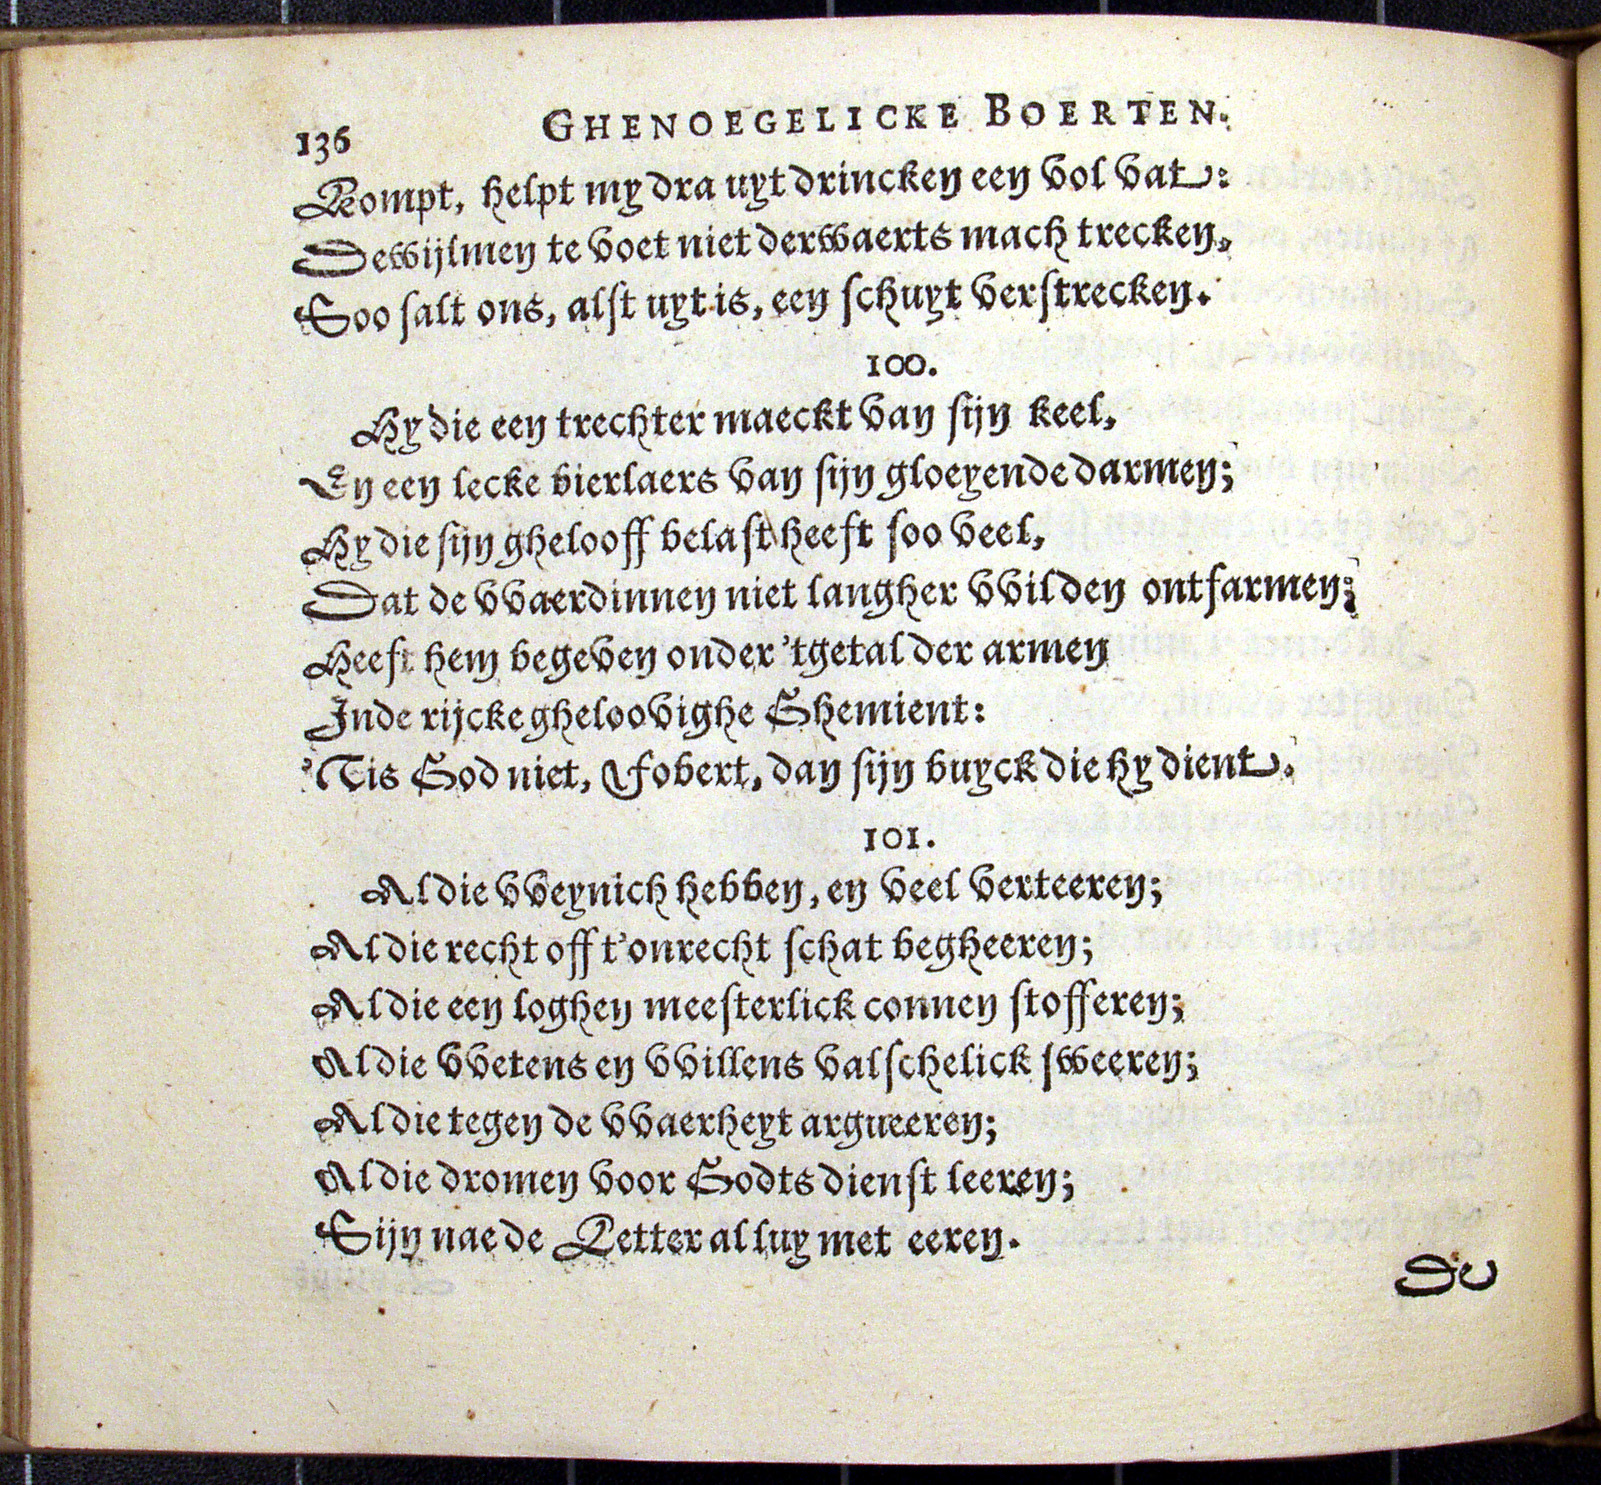 136 GHENOEGELICKE BOERTEN.
Kompt, helpt my dra uyt drincken een vol vat:
Dewijlmen te voet niet derwaerts mach trecken,
Soo salt ons, alst uyt is, een schuyt verstrecken.
100.
Hy die een trechter maeckt van sijn keel,
En een lecke bierlaers van sijn gloeyende darmen;
Hy die sijn ghelooff belast heeft soo veel,
Dat de vvaerdinnen niet langher vvilden ontfarmen;
Heeft hem begeven onder 'tgetal der armen
Inde rijcke gheloovighe Ghemient:
'Tis God niet, Fobert, dan sijn buyck die hy dient.
101.
Al die vveynich hebben, en veel verteeren;
Al die recht off t'onrecht schat begheeren;
Al die een loghen meesterlick connen stofferen;
Al die vvetens en vvillens valschelick sweeren;
Al die tegen de vvaerheyt argueeren;
Al die dromen voor Godts dienst leeren;
Sijn nae de Letter al luy met eeren.
De